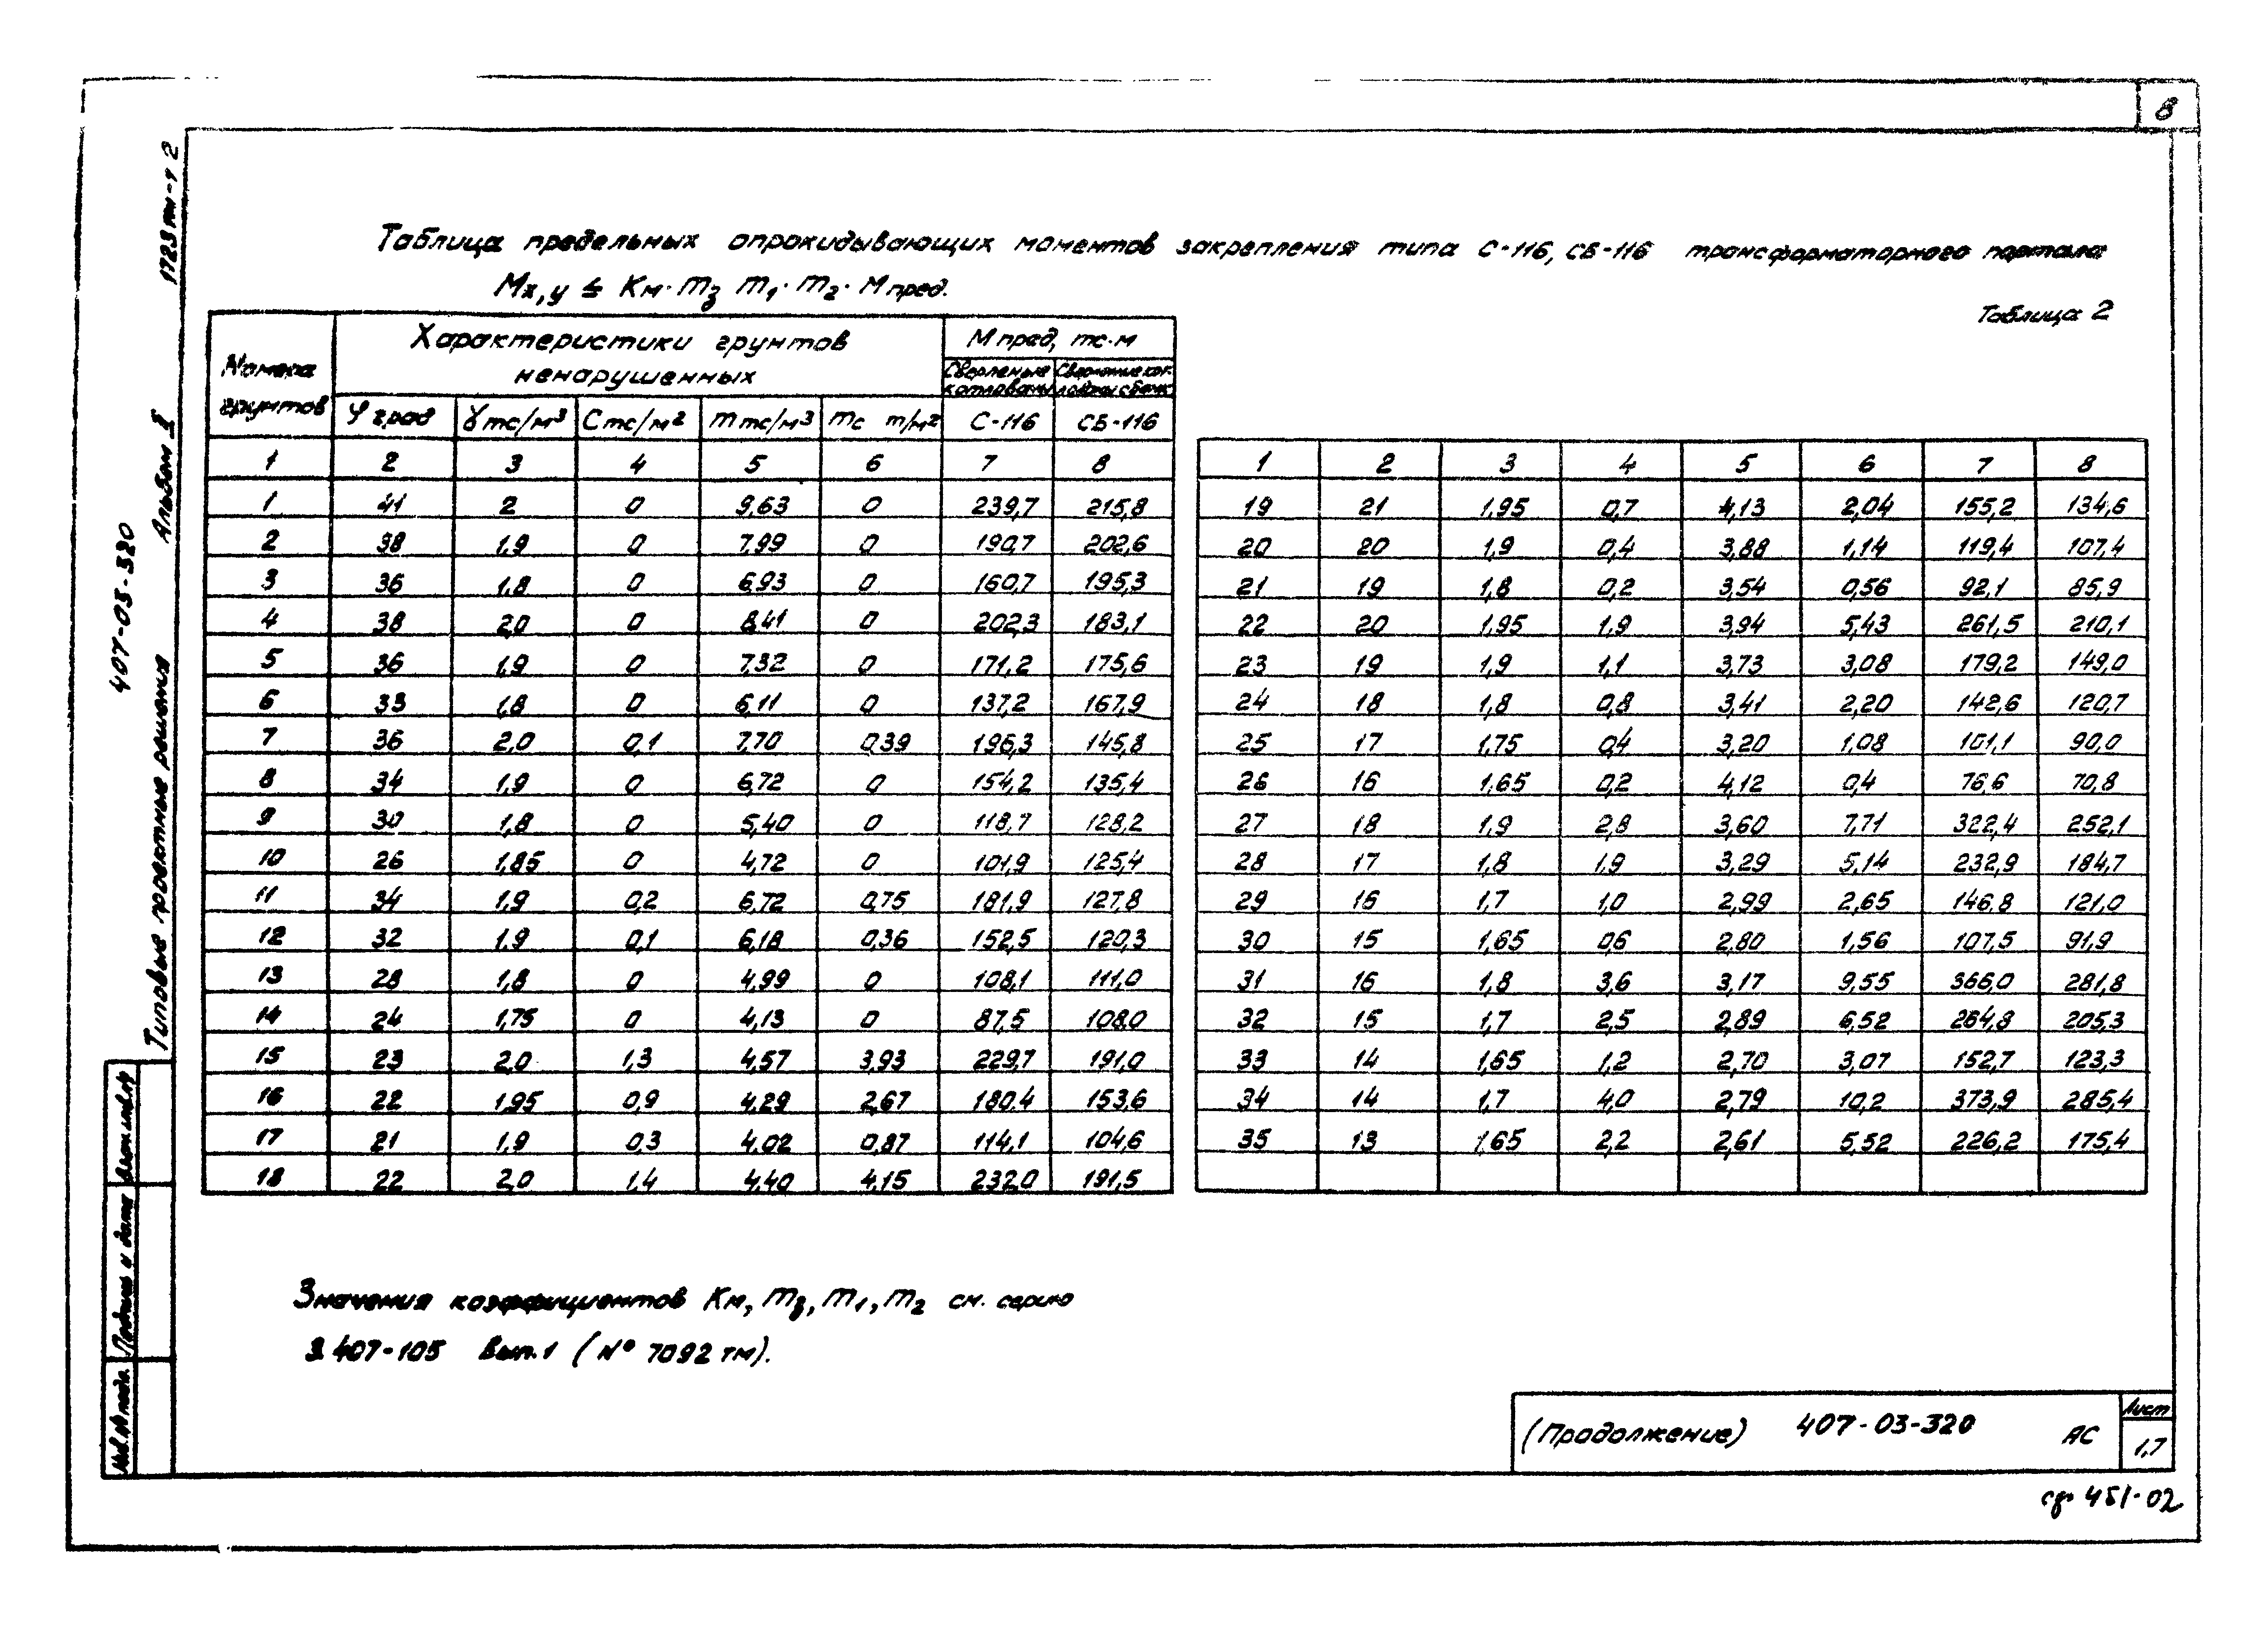 8
1723тм-т2
Альбом II
407-03-320
Типовые проектные решения
Таблица предельных опрокидывающих моментов закрепления типа С-116, СБ-116 трансформаторного портала
Мх,у ≤ Км· mз m1· m2· Мпред.
Таблица 2
Номера грунтов | Характеристики грунтов ненарушенных | М пред, тс·м
Сверленые котлованы
φ град | γ тс/м³ | С тс/м² | m тс/м³ | mc т/м² | С-116 | СБ-116
1 2 3 4 5 6 7 8
1 41 2 0 9,63 0 239,7 215,8
2 38 1,9 0 7,99 0 190,7 202,6
3 36 1,8 0 6,93 0 160,7 195,3
4 38 2,0 0 8,41 0 202,3 183,1
5 36 1,9 0 7,32 0 171,2 175,6
6 33 1,8 0 6,11 0 137,2 167,9
7 36 2,0 0,1 7,70 0,39 196,3 145,8
8 34 1,9 0 6,72 0 154,2 135,4
9 30 1,8 0 5,40 0 118,7 128,2
10 26 1,85 0 4,72 0 101,9 125,4
11 34 1,9 0,2 6,72 0,75 181,9 127,8
12 32 1,9 0,1 6,18 0,36 152,5 120,3
13 28 1,8 0 4,99 0 108,1 111,0
14 24 1,75 0 4,13 0 87,5 108,0
15 23 2,0 1,3 4,57 3,93 229,7 191,0
16 22 1,95 0,9 4,29 2,67 180,4 153,6
17 21 1,9 0,3 4,02 0,87 114,1 104,6
18 22 2,0 1,4 4,40 4,15 232,0 191,5
1 2 3 4 5 6 7 8
19 21 1,95 0,7 4,13 2,04 155,2 134,6
20 20 1,9 0,4 3,88 1,14 119,4 107,4
21 19 1,8 0,2 3,54 0,56 92,1 85,9
22 20 1,95 1,9 3,94 5,43 261,5 210,1
23 19 1,9 1,1 3,73 3,08 179,2 149,0
24 18 1,8 0,8 3,41 2,20 142,6 120,7
25 17 1,75 0,4 3,20 1,08 101,1 90,0
26 16 1,65 0,2 4,12 0,4 76,6 70,8
27 18 1,9 2,8 3,60 7,71 322,4 252,1
28 17 1,8 1,9 3,29 5,14 232,9 184,7
29 16 1,7 1,0 2,99 2,65 146,8 121,0
30 15 1,65 0,6 2,80 1,56 107,5 91,9
31 16 1,8 3,6 3,17 9,55 366,0 281,8
32 15 1,7 2,5 2,89 6,52 264,8 205,3
33 14 1,65 1,2 2,70 3,07 152,7 123,3
34 14 1,7 4,0 2,79 10,2 373,9 285,4
35 13 1,65 2,2 2,61 5,52 226,2 175,4
Значения коэффициентов Км, mз, m1, m2 см. серию
3.407-105 Вып. 1 (№ 7092 тм).
Взам.инв.№
Подпись и дата
Инв.№ подл.
(Продолжение) 407-03-320 АС
Лист
1,7
сф 451-02